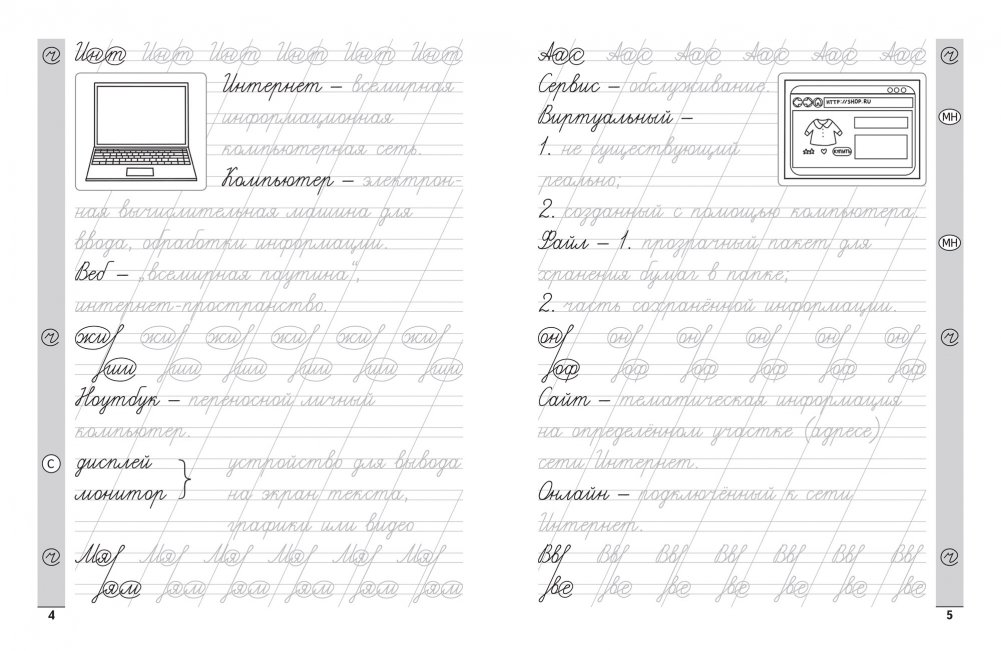 ч Инт Инт Инт Инт Инт Инт
Интернет – всемирная
информационная
компьютерная сеть.
Компьютер – электрон-
ная вычислительная машина для
ввода, обработки информации.
Веб – „всемирная паутина“,
интернет-пространство.
ч жи жи жи жи жи жи
ши ши ши ши ши ши
Ноутбук – переносной личный
компьютер.
С дисплей } устройство для вывода
монитор на экран текста,
графики или видео
ч Мя Мя Мя Мя Мя Мя
ям ям ям ям ям ям
4
Аас Аас Аас Аас Аас Аас ч
Сервис – обслуживание.
HTTP://SHOP.RU
КУПИТЬ
Виртуальный – МН
1. не существующий
реально;
2. созданный с помощью компьютера.
Файл – 1. прозрачный пакет для МН
хранения бумаг в папке;
2. часть сохранённой информации.
он он он он он он ч
оф оф оф оф оф оф
Сайт – тематическая информация
на определённом участке (адресе)
сети Интернет.
Онлайн – подключённый к сети
Интернет.
Вв Вв Вв Вв Вв Вв ч
ве ве ве ве ве ве
5